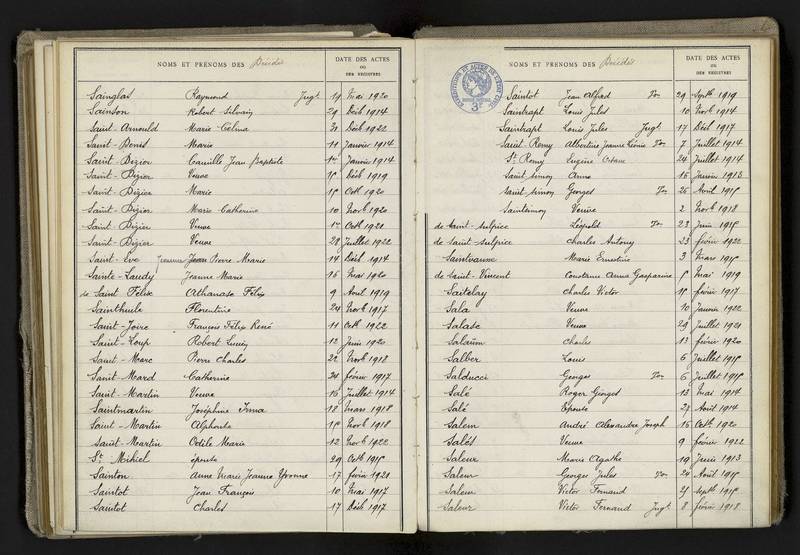 NOMS ET PRÉNOMS DES Décédés
DATE DES ACTES
OU
DES REGISTRES
Sainglas Raymond Jugt 19 Mai 1920
Sainson Robert Silvain 29 Déb 1914
Saint-Arnould Marie Celina 31 Déb 1922
Saint-Denis Marie 11 Janvier 1914
Saint Dizier Camille Jean Baptiste Janvier 1914
Saint-Dizier Veuve Déb 1919
Saint-Dizier Marie Octb 1920
Saint-Dizier Marie Catherine 10 Novb 1920
Saint Dizier Veuve Octb 1921
Saint-Dizier Veuve 28 Juillet 1922
Saint-Eve Jeanne Jean Pierre Marie 14 Déb 1914
Sainte-Laudy Jeanne Marie 16 Mai 1920
de Saint Félix Athanase Félix 9 Avril 1919
Sainthuile Florentine 24 Novb 1917
Saint-Joire François Félix René 11 Octb 1922
Saint-Loup Robert Lucien 12 Juin 1920
Saint-Marc Pierre Charles 22 Novb 1918
Saint-Mard Catherine 24 février 1917
Saint-Martin Veuve 15 Juillet 1914
Saintmartin Joséphine Irma 18 Mars 1918
Saint-Martin Alphonse Novb 1918
Saint-Martin Odile Marie 12 Novb 1922
St Mihiel épouse 29 Octb
Sainton Anne Marie Jeanne Yvonne 17 février 1921
Saintot Jean François 10 Mai 1917
Saintot Charles 17 Déb 1917
NOMS ET PRÉNOMS DES Décédés
DATE DES ACTES
OU
DES REGISTRES
Saintot Jean Alfred 29 Septb 1919
Saintrapt Louis Jules 10 Novb 1914
Saintrapt Louis Jules Jugt 17 Déb 1917
Saint-Remy Albertine Jeanne Léonie 7 Juillet 1914
St Remy Eugène 24 Juillet 1914
Saint simon Anne 16 Janvier 1913
Saint simon Georges 25 Avril
Saintsimon Veuve 2 Novb 1918
de Saint-Sulpice Léopold 23 Juin
de Saint Sulpice Charles Antony 23 février 1922
Saintvanne Marie Ernestine 3 Mars
de Saint-Vincent Constance Anna Gasparine Mai 1919
Saitelay Charles Victor février 1917
Sala Veuve 10 Janvier 1922
Salabe Veuve 29 Juillet 1921
Salaün Charles 13 février 1920
Salber Louis 6 Juillet
Salducci Georges 6 Juillet
Salé Roger Georges 13 Mai 1914
Salé Epouse 27 Avril 1914
Salem André Alexandre Joseph 16 Octb 1920
Salès Veuve 9 février 1922
Saleur Marie Agathe 19 Juin 1913
Saleur Georges Jules 24 Août
Saleur Victor Fernand Septb
Saleur Victor Fernand Jugt 8 février 1918